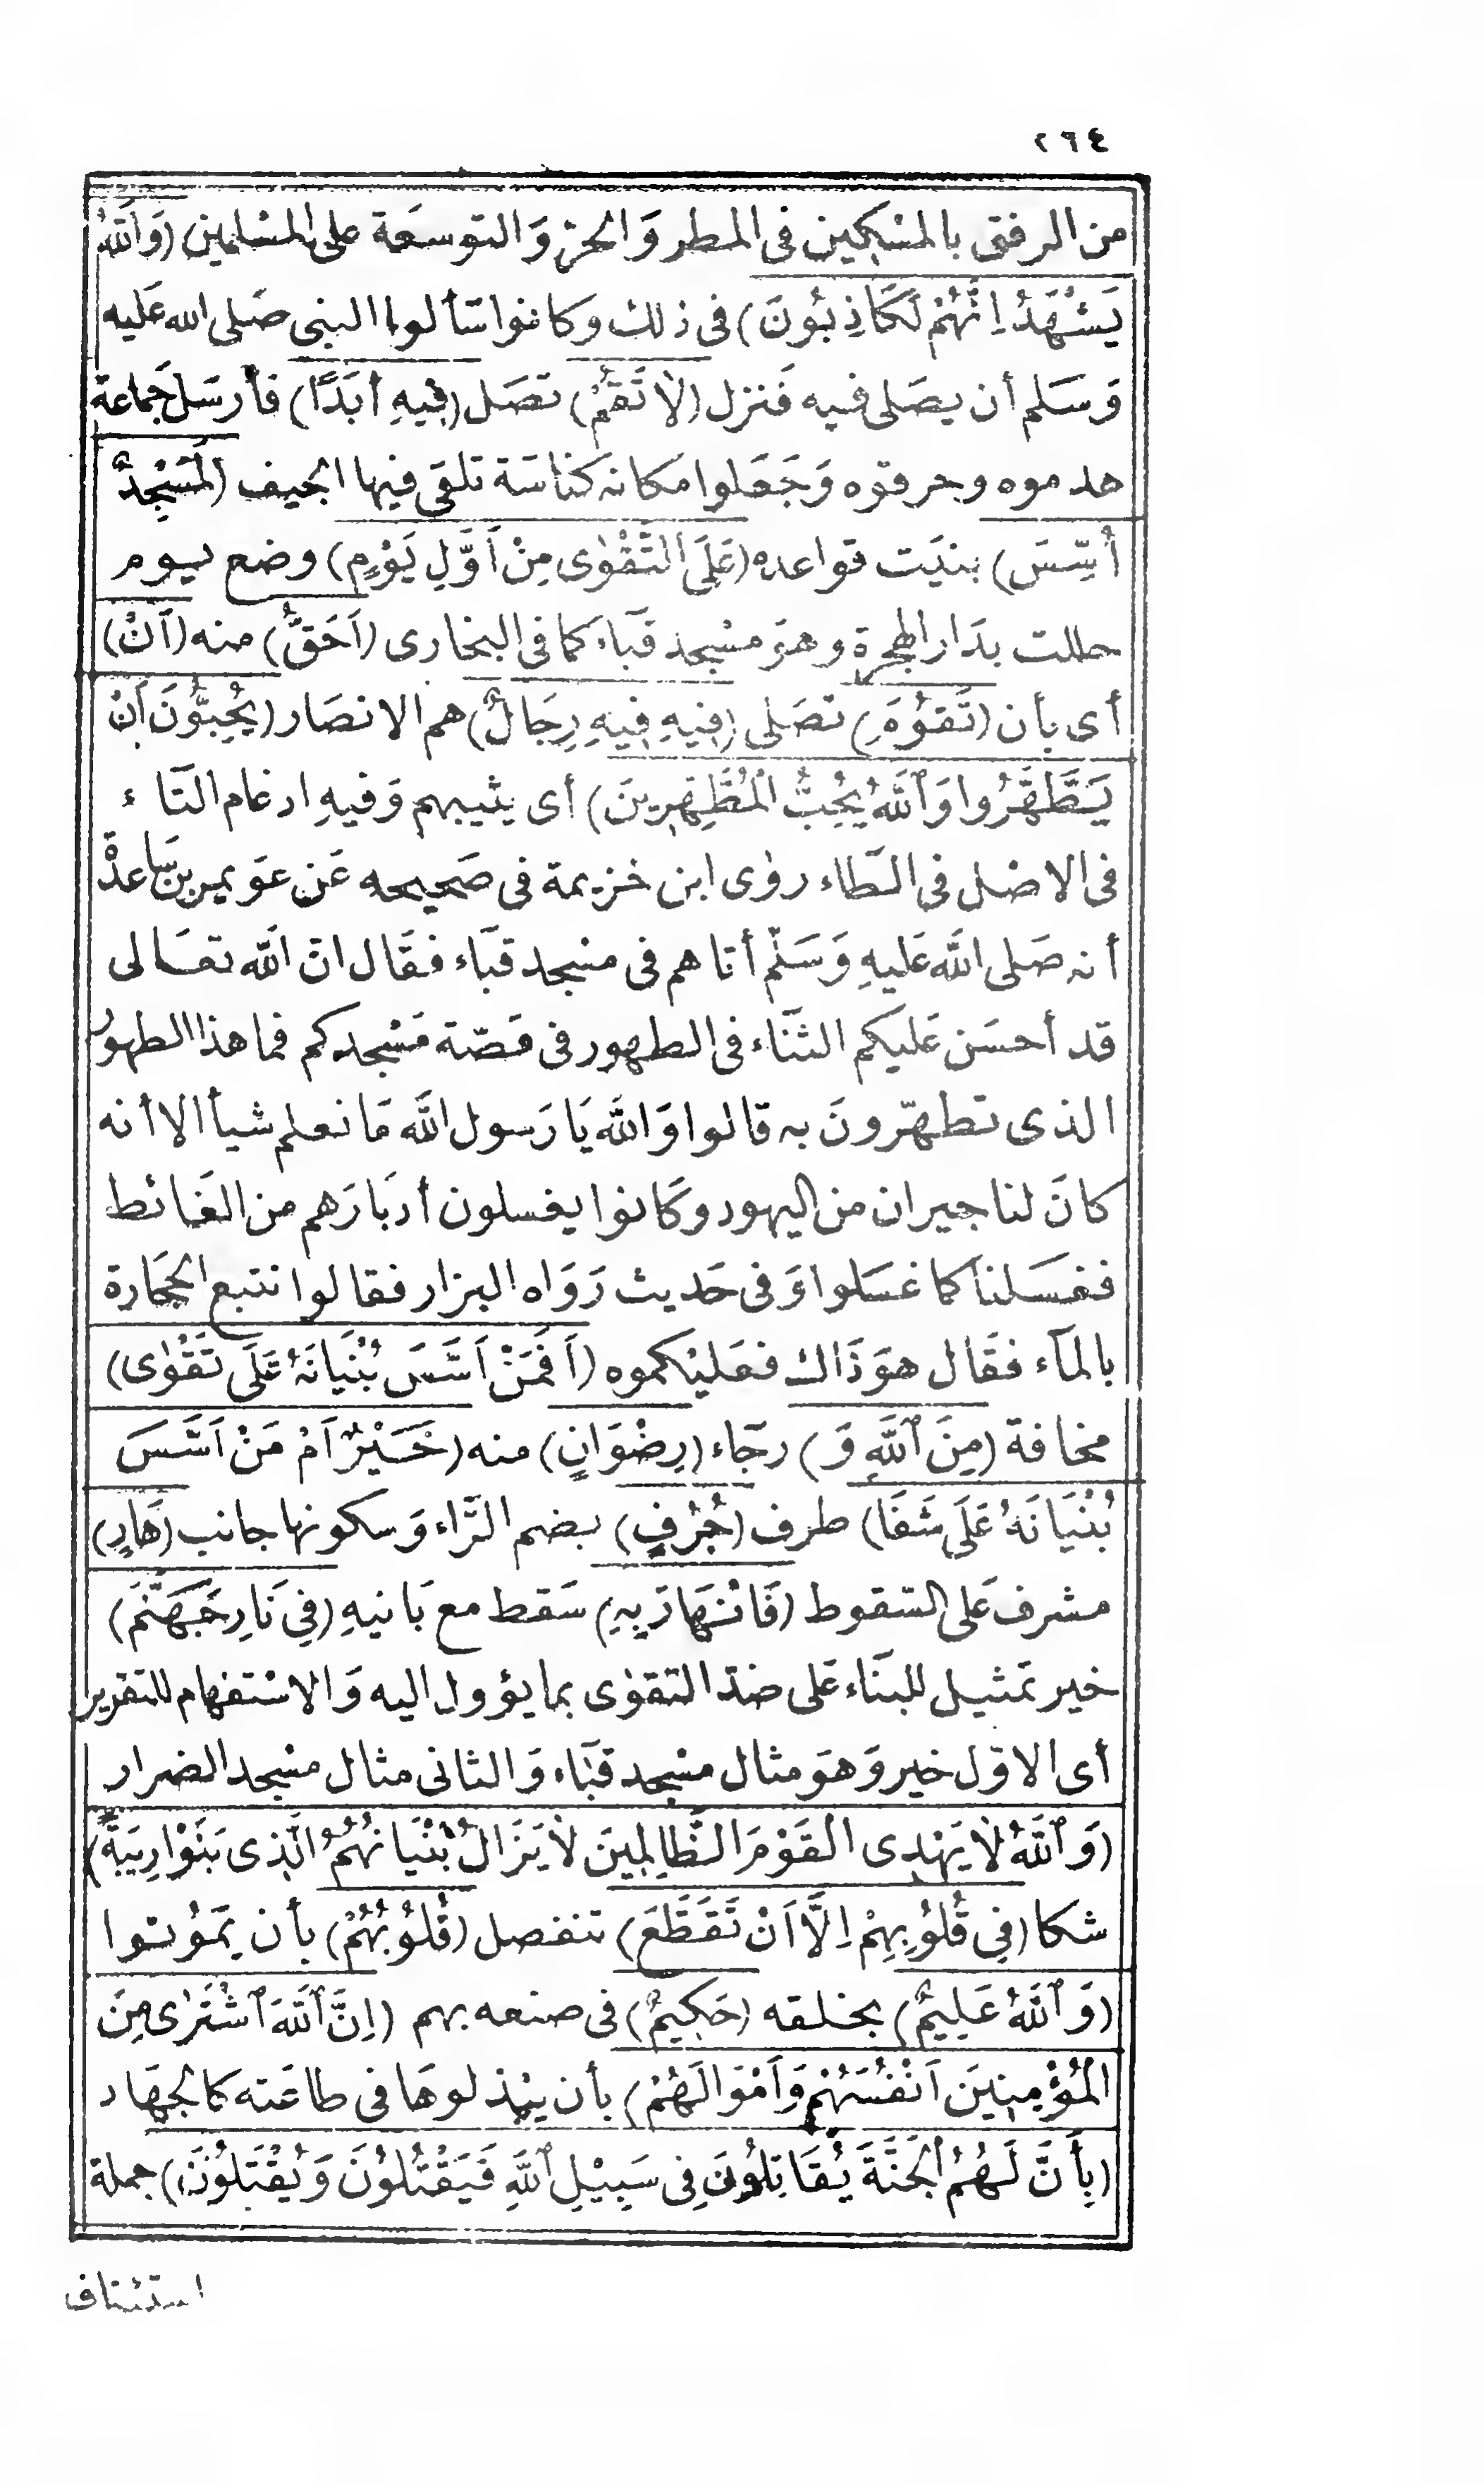 ٢٩٤
من الرفق بالمسْكين فى المطر وَالحرّ وَالتوسعَة على المسْلمين (وَاللّٰهُ
يَشْهَدُ اِنَّهُمْ لَكَاذِبُونَ) فى ذلك وكانوا سَألوا النبى صَلى الله عَليه
وَسَلم أن يصَلى فيه فَنزل (لاَ تَقُمْ) تصَل (فِيهِ أبَدًا) فأرسَل جَماعة
هدموه وحرقوه وَجَعَلوا مكانه كناسَة تلقى فيها الجيف (لَمَسْجِدٌ
أُسِّسَ) بنيَت قواعده (عَلَى اَلتَّقْوٰى مِنْ اَوَّلِ يَوْمٍ) وضع يوم
حللت بدَار الهجرة وهوَ مسْجد قبَاء كما فى البخارى (اَحَقُّ) منه (اَنْ)
أى بأن (تَقُومَ) تصَلى (فِيهِ فِيهِ رِجَالٌ) هم الانصَار (يُحِبُّونَ اَنْ
يَتَطَهَّرُوا وَاَللَّهُ يُحِبُّ الْمُطَّهِّرِينَ) أى يثيبهم وَفيهِ ادغام التَاء
فى الاصْل فى الطَاء روٰى ابن خزيمة فى صَحيحه عَن عوَيمر بن سَاعدة
أنه صَلى اللَّه عَليهِ وَسَلّم أتاهم فى مسْجد قبَاء فقَال انّ اللَّه تعَالى
قد أحسَن عَليكم الثنَاء فى الطهور فى قصّة مَسْجدكم فما هذا الطهوُر
الذى تطهّرونَ به قالوا وَاللَّه يَا رَسول اللَّه مَا نعلم شيأ الا أنه
كانَ لنا جيران من اليهود وكَانوا يغسلون أدبَارَهم من الغَائط
فغسَلنا كما غسَلوا وَفى حَديث رَوَاه البزار فقالوا نتبع الحجَارة
بالمَاء فقَال هوَ ذَاك فعَليْكموه (اَفَمَنْ اَسَّسَ بُنْيَانَهُ عَلَى تَقْوٰى)
مخافة (مِنَ اَللَّهِ وَ) رجَاء (رِضْوَانٍ) منه (خَيْرٌ اَمْ مَنْ اَسَّسَ
بُنْيَانَهُ عَلَى شَفَا) طرف (جُرُفٍ) بضم الرَّاء وَسكونها جانب (هَارٍ)
مشرف عَلى السّقوط (فَانْهَارَ بِهِ) سَقط مع بَانيهِ (فِي نَارِ جَهَنَّمَ)
خير تمَثيل للبنَاء عَلى ضدّ التقوٰى بما يؤول اليه وَالاسْتفهام للتقرير
أى الاوّل خير وَهوَ مثال مسْجد قبَاء وَالثانى مثال مسْجد الضرار
(وَاَللَّهُ لاَ يَهْدِى الْقَوْمَ الظَّالِمِينَ لاَ يَزَالُ بُنْيَانُهُمُ الَّذِى بَنَوْا رِيبَةً)
شكا (فِي قُلُوبِهِمْ اِلَّا اَنْ تَقَطَّعَ) تنفصل (قُلُوبُهُمْ) بأن يَموُتوا
(وَاَللَّهُ عَلِيمٌ) بخلقه (حَكِيمٌ) فى صنعه بهم (اِنَّ اَللَّهَ اَشْتَرٰى مِنَ
الْمُؤْمِنِينَ اَنْفُسَهُمْ وَاَمْوَالَهُمْ) بأن يبْذلوهَا فى طاعَته كالجهَاد
(بِأَنَّ لَهُمُ اْلجَنَّةَ يُقَاتِلُونَ فِى سَبِيْلِ اَللَّهِ فَيَقْتُلُونَ وَيُقْتَلُونَ) جملة
استئناف